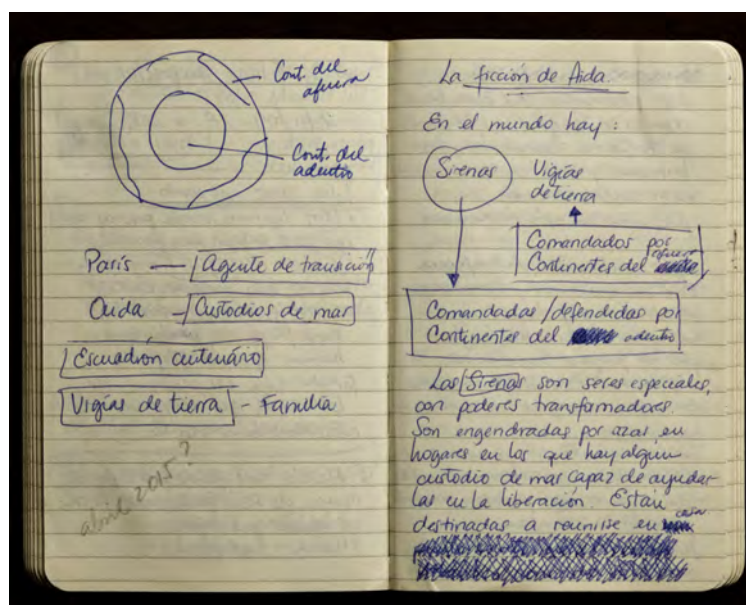 Cont. del
afuera
Cont. del
adentro
París — Agente de transición
Ouida — Custodios de mar
Escuadrón centenário
Vigías de tierra - Familia
abril 2015?
La ficción de Aida.
En el mundo hay:
Sirenas
Vigías
de tierra
Comandados por
Continentes del afuera
Comandadas/defendidas por
Continentes del adentro
Las Sirenas son seres especiales,
con poderes transformadores.
Son engendradas por azar en
hogares en los que hay algún
custodio de mar capaz de ayudar
las en la liberación. Están
destinadas a reunirse en